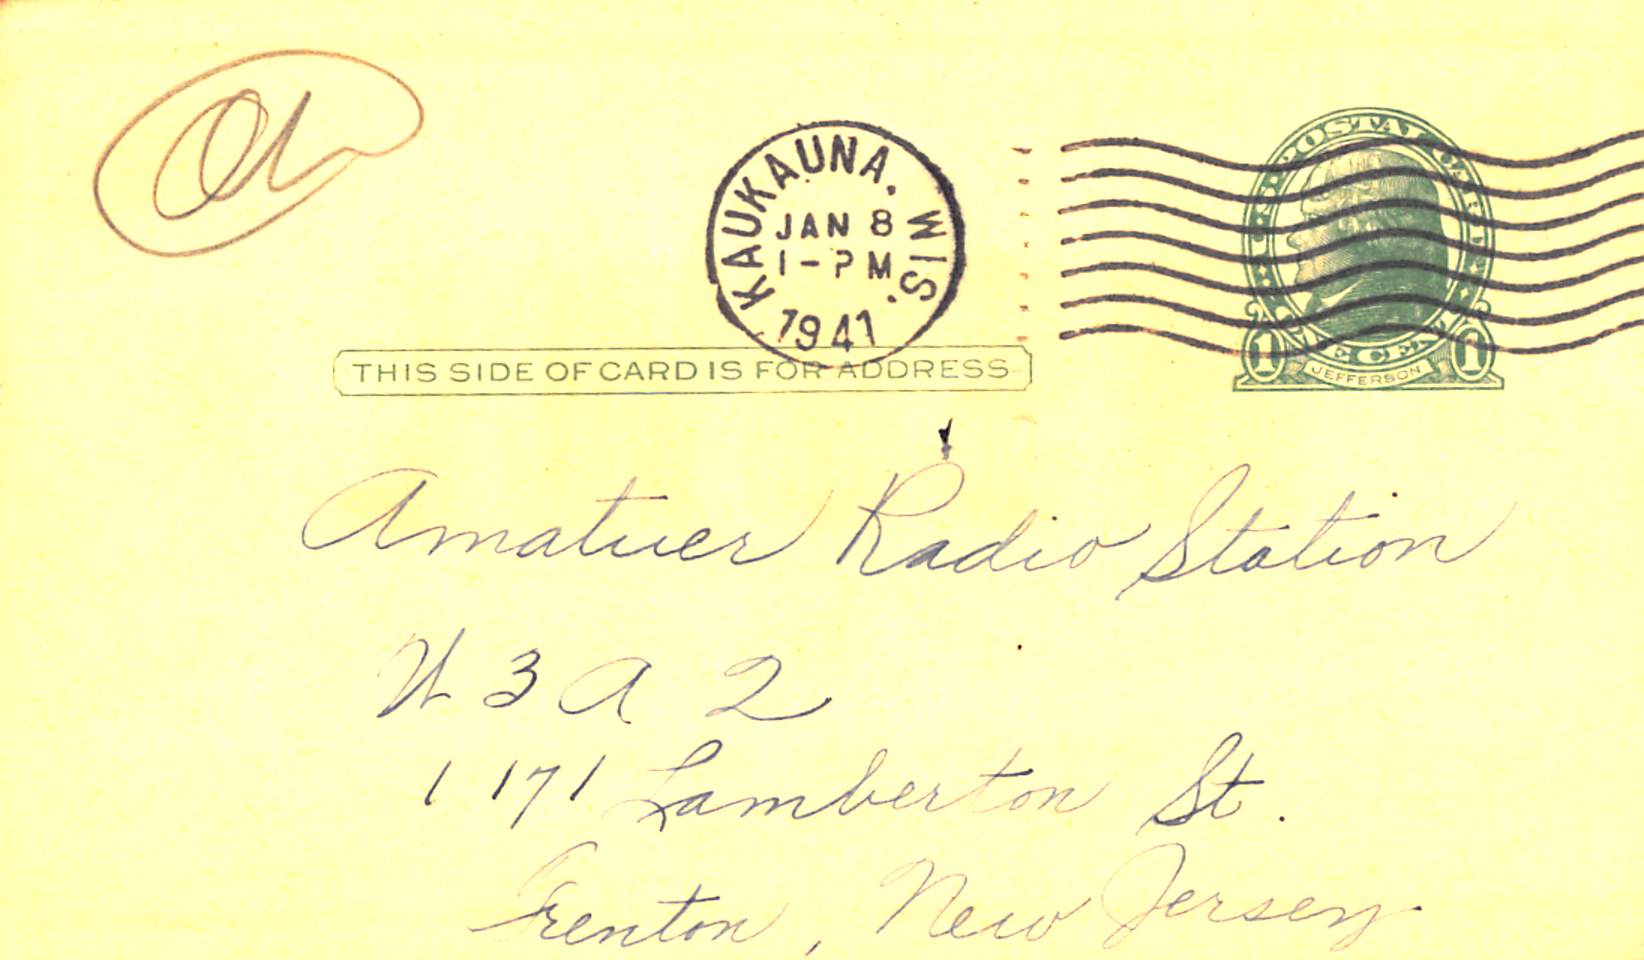 KAUKAUNA, WIS.
JAN 8
1-PM
1941
U.S. POSTAL CARD
ONE CENT
1 JEFFERSON 1
THIS SIDE OF CARD IS FOR ADDRESS
Amatuer Radio Station
W 3 A 2
1171 Lamberton St.
Trenton, New Jersey